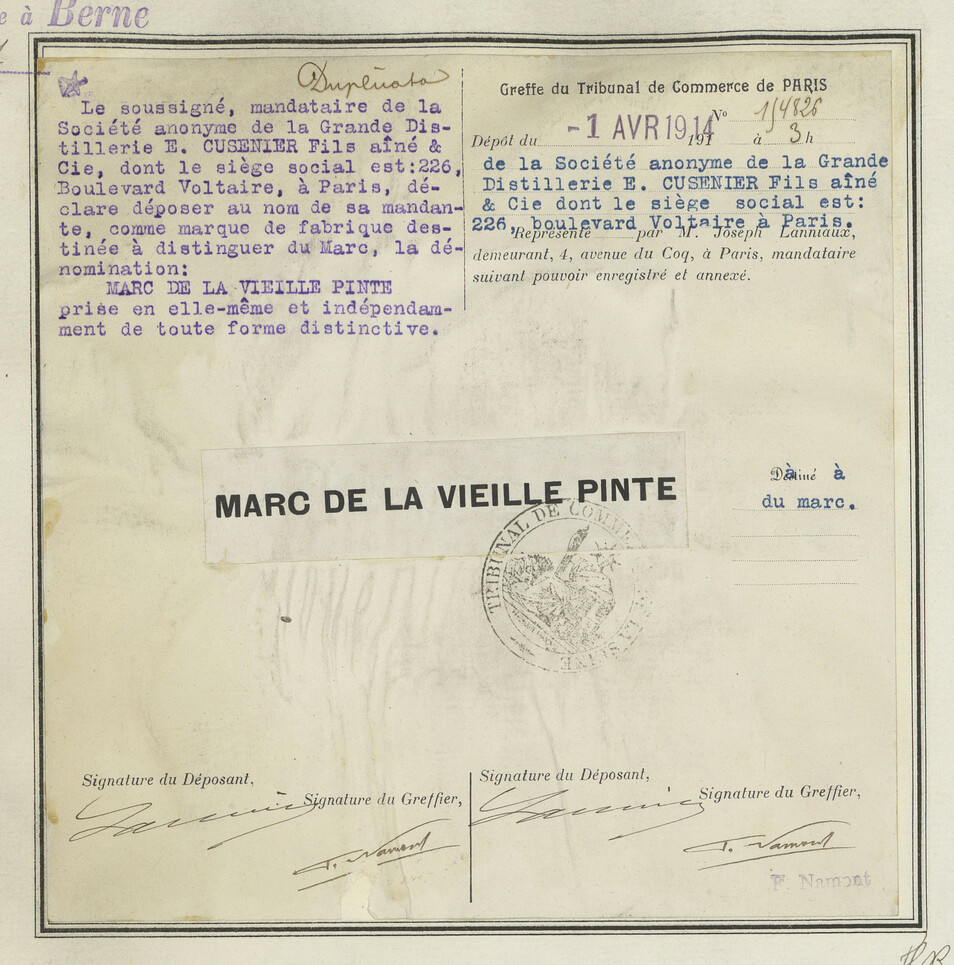 e à Berne
Duplicata
Le soussigné, mandataire de la
Société anonyme de la Grande Dis-
tillerie E. CUSENIER Fils aîné &
Cie, dont le siège social est:226,
Boulevard Voltaire, à Paris, dé-
clare déposer au nom de sa mandan-
te, comme marque de fabrique des-
tinée à distinguer du Marc, la dé-
nomination:
MARC DE LA VIEILLE PINTE
prise en elle-même et indépendam-
ment de toute forme distinctive.
Greffe du Tribunal de Commerce de PARIS
No 1/4826
Dépôt du -1 AVR 1914 191 à 3 h
de la Société anonyme de la Grande
Distillerie E. CUSENIER Fils aîné
& Cie dont le siège social est:
226, boulevard Voltaire à Paris.
Représenté par M. Joseph Lanniaux,
demeurant, 4, avenue du Coq, à Paris, mandataire
suivant pouvoir enregistré et annexé.
MARC DE LA VIEILLE PINTE
Destiné à
du marc.
TRIBUNAL DE COMMERCE DE LA SEINE
Signature du Déposant,
Signature du Greffier,
F. Namont
Signature du Déposant,
Signature du Greffier,
F. Namont
F. Namont